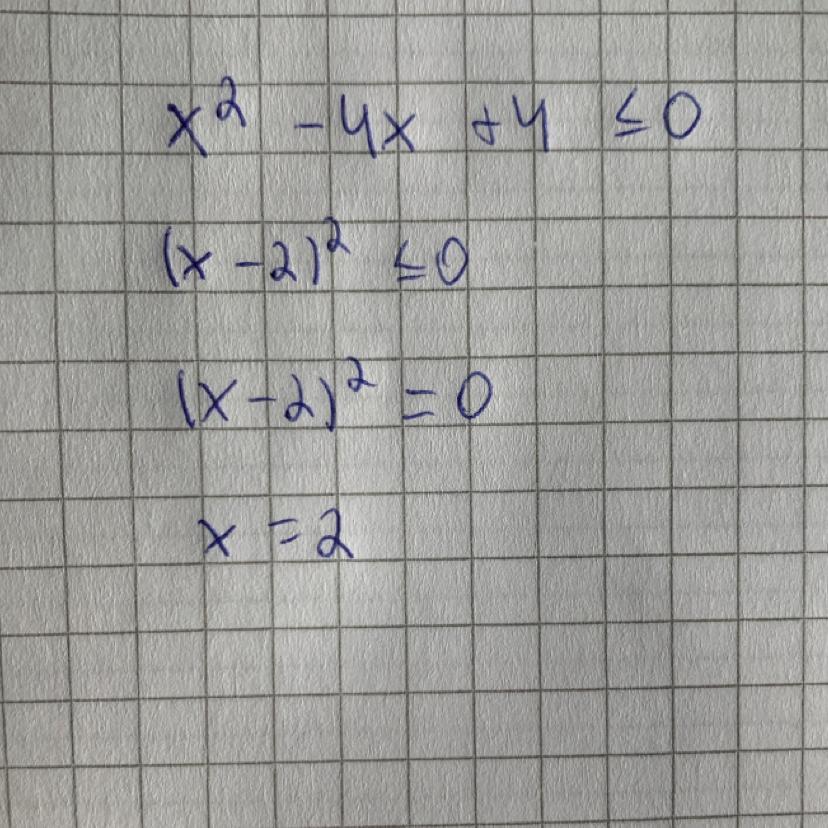 x² - 4x + 4 ≤ 0
(x - 2)² ≤ 0
(x - 2)² = 0
x = 2